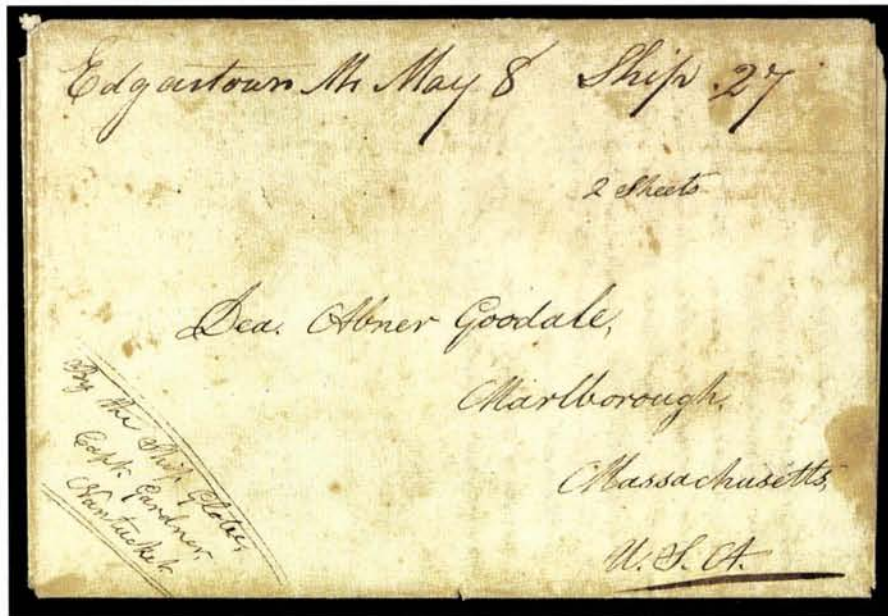 Edgartown Ms May 8 Ship 27
2 Sheets
Dea. Abner Goodale,
Marlborough,
Massachusetts,
U.S.A.
By the Ship
Capt. Gardner,
Nantucket